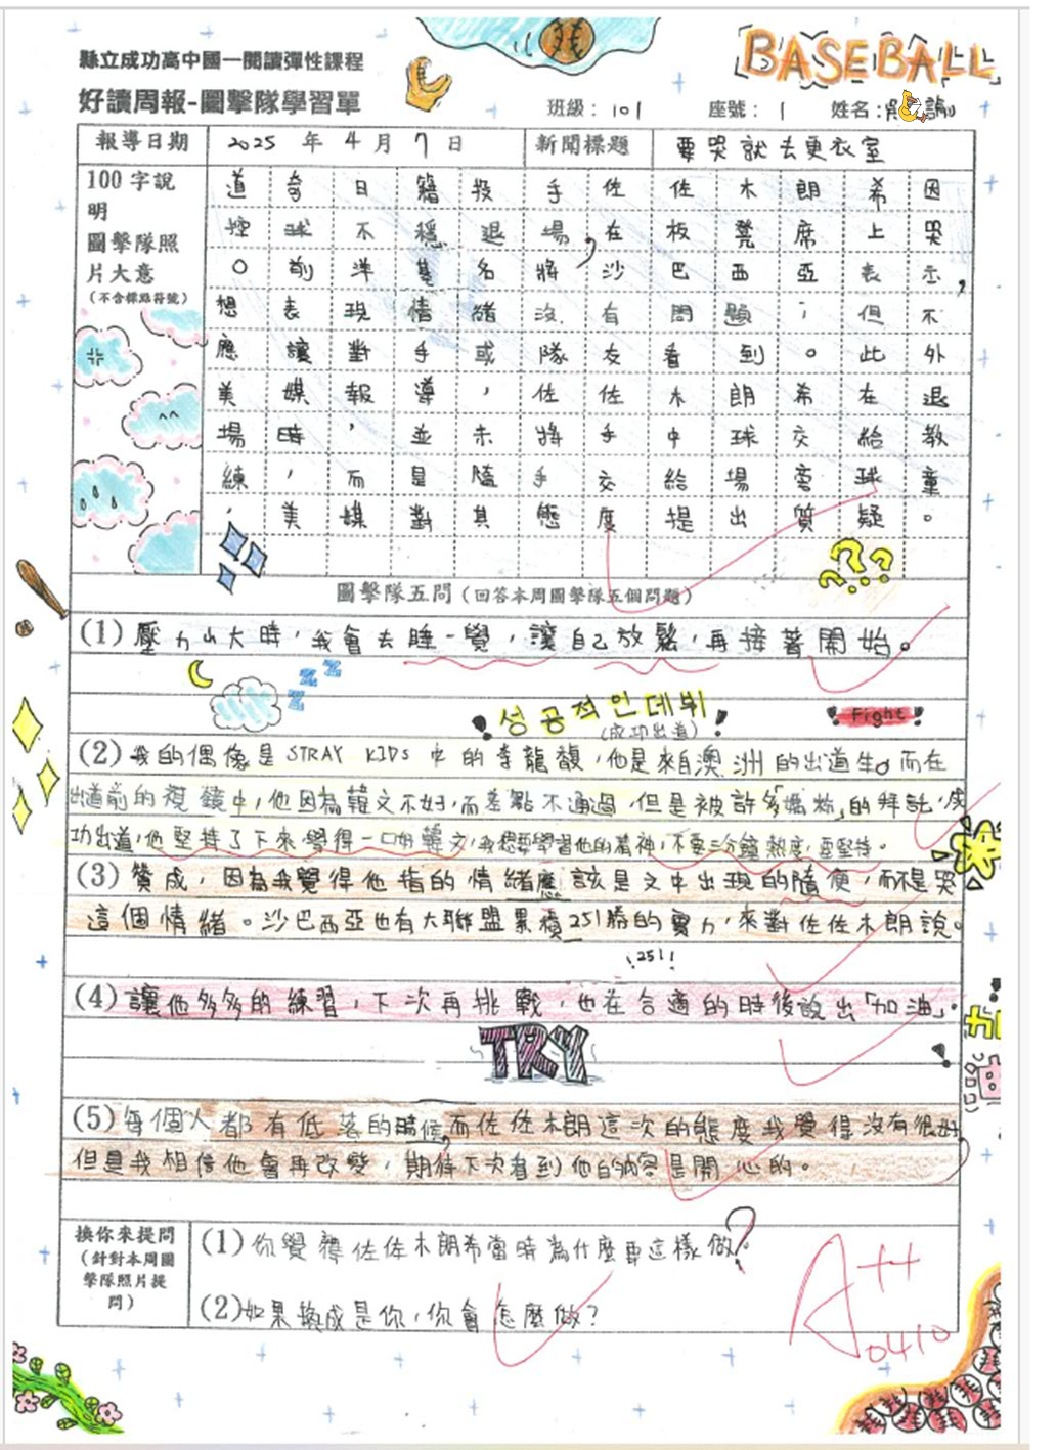 BASEBALL
縣立成功高中國一閱讀彈性課程
好讀周報-圖擊隊學習單
班級：101 座號：1 姓名：
報導日期 2025年4月7日 新聞標題 要哭就去更衣室
100字說明
圖擊隊照片大意
（不含標點符號）
道奇日籍投手佐佐木朗希因
煙球不穩退場，在板凳席上哭
。前洋基名將沙巴西亞表示，
想表現情緒沒有問題；但不
應讓對手或隊友看到。此外
美媒報導，佐佐木朗希在退
場時，並未將手中球交給教
練，而是隨手交給場旁球童
，美媒對其態度提出質疑。
圖擊隊五問（回答本周圖擊隊五個問題）
(1)壓力山大時，我會去睡一覺，讓自己放鬆，再接著開始。
z z z
성공적인데뷔！
(成功出道)
Fight
(2)我的偶像是STRAY KIDS中的李龍馥，他是來自澳洲的出道生。而在
出道前的視鏡中，他因為韓文不好，而差點不通過，但是被許多媽粉」的拜託，成
功出道，他堅持了下來，學得一口好韓文，我想要學習他的精神，不要三分鐘熱度，要堅持。
(3)贊成，因為我覺得他指的情緒應該是文中出現的隨便，而不是哭
這個情緒。沙巴西亞也有大聯盟累積251勝的實力，來對佐佐木朗說。
!251!
(4)讓他多多的練習，下次再挑戰，也在合適的時後說出「加油」。
TRY
(5)每個人都有低落的時候，而佐佐木朗這次的態度我覺得沒有很好，
但是我相信他會再改變，期待下次看到他的內容是開心的。
換你來提問
（針對本周圖擊隊照片提問）
(1)你覺得佐佐木朗希當時為什麼要這樣做？
(2)如果換成是你，你會怎麼做？
A++
0410